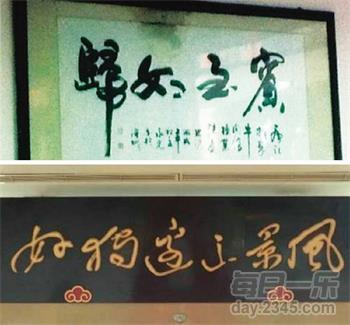 賓至如歸
風景这邊独好
每日一乐
day.2345.com